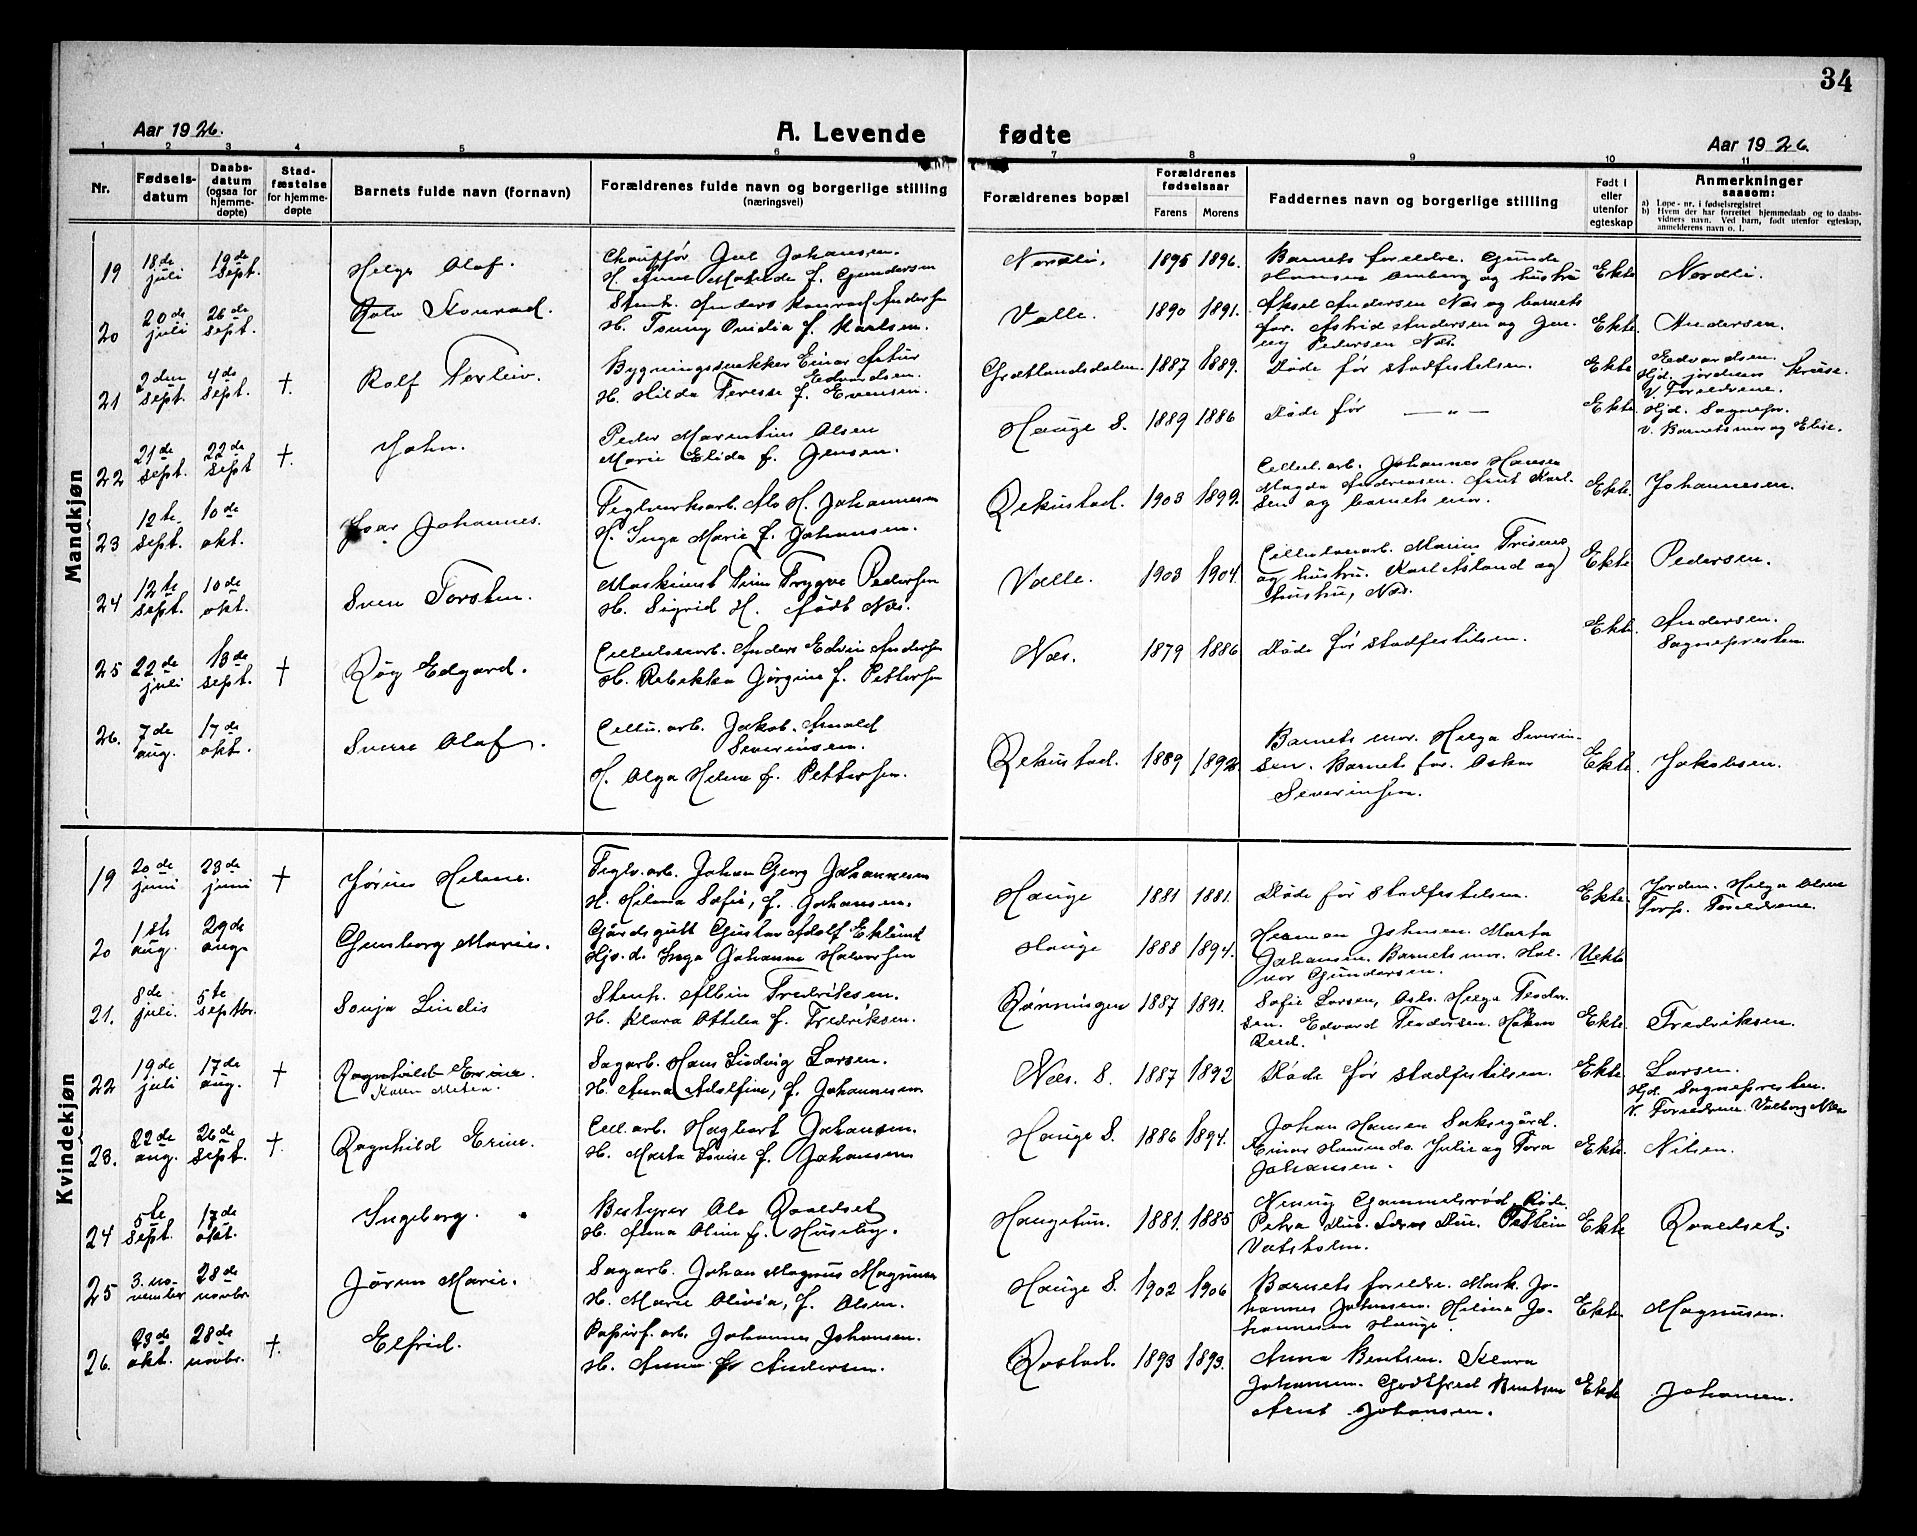 34
Aar 1926.
A. Levende fødte
Aar 1926.
1 2 3 4 5 6 7 8 9 10 11
Nr.
Fødsels-
datum
Daabs-
datum
(ogsaa for
hjemme-
døpte)
Stad-
fæstelse
for hjemme-
døpte
Barnets fulde navn (fornavn)
Forældrenes fulde navn og borgerlige stilling
(næringsvei)
Forældrenes bopæl
Forældrenes
fødselsaar
Farens Morens
Faddernes navn og borgerlige stilling
Født i
eller
utenfor
egteskap
Anmerkninger
saasom:
a) Løpe-nr. i fødselsregistret
b) Hvem der har forrettet hjemmedaab og to daabs-
vidners navn. Ved barn, født utenfor egteskap,
anmelderens navn o. l.
Mandkjøn
19 18de juli 19de sept. Helge Olaf.
Chauffør Johansen.
H. Anne Matilde f. Gundersen
1895 1896.
Barnets foreldre.
og hustru
Ekte Nordli.
20 20de juli 26de sept. Konrad.
Anders Konrad Andersen
H. Ovidia f. Karlsen.
Valle. 1890 1891.
Aksel Andersen Næs og barnets
far. Astrid Andersen og Jen-
ny Pedersen Næs.
Ekte. Andersen.
21 2den sept. 4de sept. † Rolf Terleiv.
Bygningssnekker Einar Artur
Edvardsen.
H. Hilda Terese f. Evensen.
Grætlandsdalen. 1887 1889. Døde før stadfestelsen. Ekte
Edvardsen.
Hjd. jordmor Kruse.
V. Foreldrene.
22 21de sept. 22de sept † John.
Peder Marentius Olsen
Marie Elida f. Jensen.
Hauge S. 1889 1886 Døde før — „ — Ekte.
Hjd. Sognepr.
V. Barnetsmor og Elise.
23 12te sept. 10de okt. Ivar Johannes.
Teglverksarb. H. Johannesen
H. Inga Marie f. Johansen.
Rekustad. 1903 1899.
Cellul. arb. Johannes Hansen
Magda Andreasen. Arnt Karl-
sen og barnets mor.
Ekte. Johannesen.
24 12te sept. 10de okt. Sven Torsten.
Maskinist Trygve Pedersen
H. Sigrid H. født Næs.
Valle. 1903 1904.
Cellulosearb. Marius
og hustru. og
hustru, Næs.
Ekte Pedersen.
25 22de juli 13de sept. † Røy Edgard.
Cellulosearb. Anders Edvin Andersen
H. Rebekka Jørgine f. Pettersen
Næs. 1879 1886 Døde før stadfestelsen. Ekte.
Andersen.
Sognepresten
26. 7de aug. 17de okt. Sverre Olaf.
Cellu. arb. Jakob. Arnold
Severinsen.
H. Olga Helene f. Pettersen.
Rekustad. 1889 1892.
Barnets mor. Helga Severin-
sen. Barnets far. Oskar
Severinsen.
Ekte. Jakobsen.
Kvindekjøn
19 20de juni 23de juni † Jørun Helene.
Teglv. arb. Johan Georg Johannesen
H. Hilma Sofie, f. Johansen.
Hauge 1881 1881. Døde før stadfestelsen. Ekte.
Jordm. Helga Olsen
Torp. Foreldrene.
20 1ste aug. 29de aug. Gunborg Marie.
Gårdsgutt Gustav Adolf Eklund
Hjs. d. Inga Johanne Halvorsen
Hauge 1888 1894.
Herman Johnsen. Marta
Johansen. Barnets mor. Hal-
vor Gundersen.
Uekte
21. 8de juli. 5te septbr. Sonja Lindis
Stenh. Albin Fredriksen.
H. Klara Ottilia f. Fredriksen.
Rønningen 1887 1891.
Sofie Larsen, Oslo. Helga Teodor-
sen. Edvard Teodorsen. Håkon
Ekte. Fredriksen.
22 19de juli 17de aug. † Ragnhild
Sagarb. Hans Ludvig Larsen.
H. Anna Adolfine, f. Johannesen
Næs. S. 1887 1892 Døde før stadfestelsen. Ekte.
Larsen.
Hjd. Sognepresten.
V. Foreldrene. Valborg
23. 22de aug. 26de sept. † Ragnhild Erine.
Cell. arb. Hagbart Johansen.
H. Marta Lovise f. Johansen
Hauge S. 1886 1894.
Johan Hansen Saksegård.
Einar Hansen do. Julie og Tora
Johansen.
Ekte. Nilsen.
24 5te sept. 17de okt. Ingeborg.
Bestyrer Ole Roaldset
H. Anna Oline f. Huseby.
Haugetun. 1881. 1885
Gammelsrød, Råde.
Petra
Ekte Roaldset,
25 3. november 28de novbr. Jørun Marie.
Sagarb. Johan Magnus Magnusen
H. Marie Olivia, f. Olsen.
Hauge S. 1902 1906
Barnets foreldre. Mask. Jo-
hannes Johnsen. Helina Jo-
hannesen Hauge.
Ekte. Magnusen.
26. 23de okt. 28de novbr. † Elfrid.
Papirf. arb. Johannes Johansen.
H. Anna f. Andersen.
Rostad. 1893 1893.
Anna Bentsen. Klara
Johansen. Godtfred Bentsen
Arnt Johansen.
Ekte Johansen.